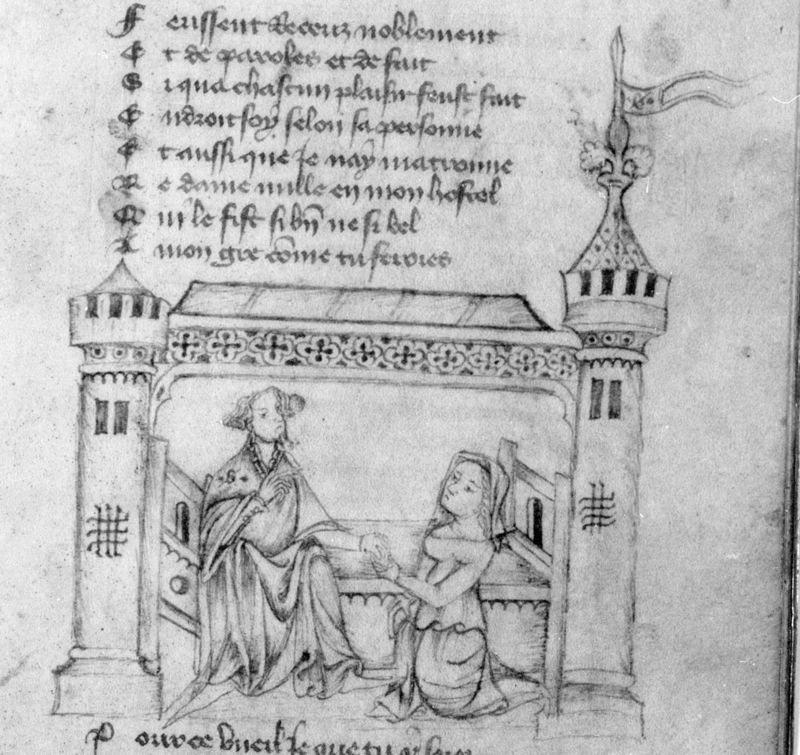 F eussent Receuz noblement
E t de paroles et de fait
S i qua chascun plaisir feust fait
E ndroit soy selon sa personne
E t aussi que Je nay matronne
N e dame nulle en mon hostel
Q ui le fist si bn̄ ne si bel
A mon gre cōme tu feroies
P our ce vueil Je que tu